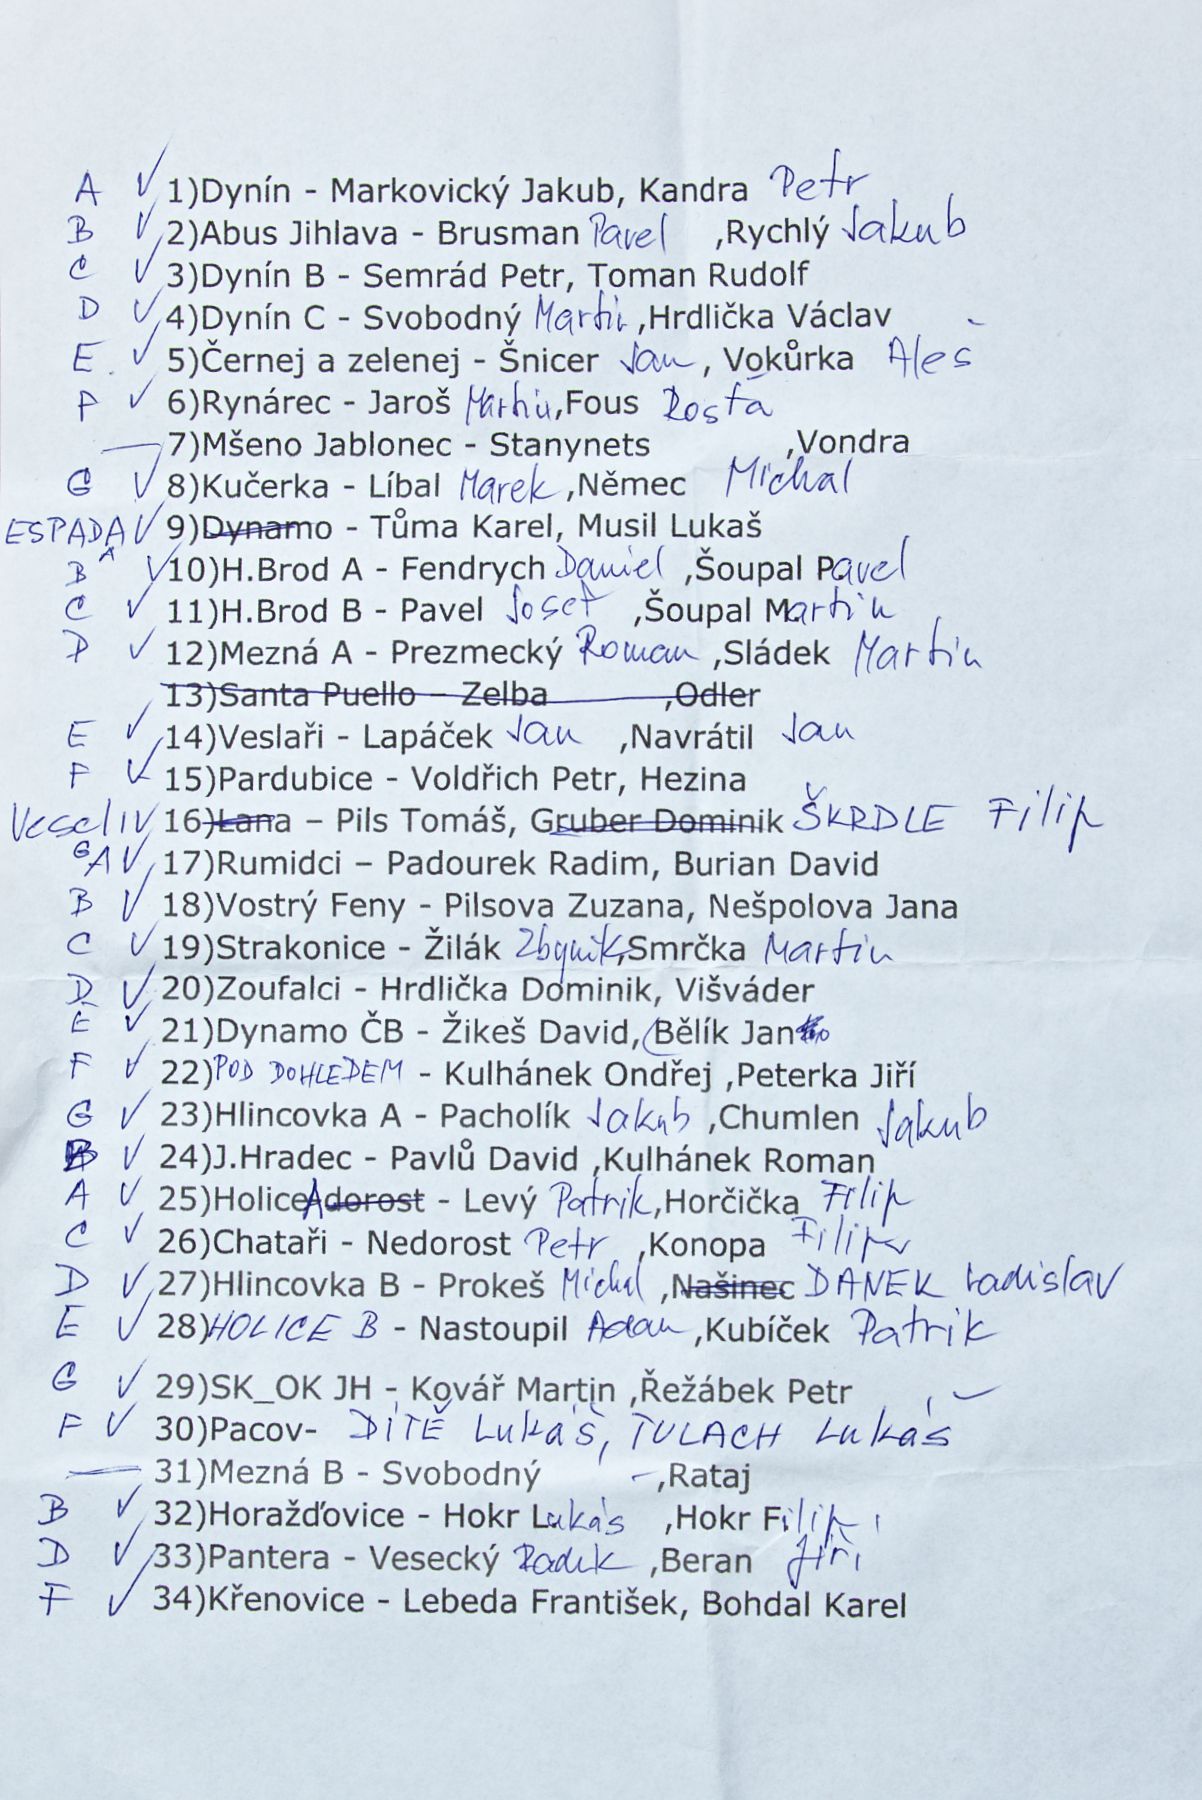 A ✓ 1)Dynín - Markovický Jakub, Kandra Petr
B ✓ 2)Abus Jihlava - Brusman Pavel ,Rychlý Jakub
C ✓ 3)Dynín B - Semrád Petr, Toman Rudolf
D ✓ 4)Dynín C - Svobodný Martin ,Hrdlička Václav
E ✓ 5)Černej a zelenej - Šnicer Jan , Vokůrka Aleš
F ✓ 6)Rynárec - Jaroš Martin,Fous Rosťa
— 7)Mšeno Jablonec - Stanynets ,Vondra
G ✓ 8)Kučerka - Líbal Marek ,Němec Michal
ESPADA ✓ 9)Dynamo - Tůma Karel, Musil Lukaš
A
B ✓ 10)H.Brod A - Fendrych Daniel ,Šoupal Pavel
C ✓ 11)H.Brod B - Pavel Josef ,Šoupal Martin
D ✓ 12)Mezná A - Prezmecký Roman ,Sládek Martin
13)Santa Puello – Zelba ,Odler
E ✓ 14)Veslaři - Lapáček Jan ,Navrátil Jan
F ✓ 15)Pardubice - Voldřich Petr, Hezina
Veselí ✓ 16)Lana – Pils Tomáš, Gruber Dominik ŠKRDLE Filip
G A ✓ 17)Rumidci – Padourek Radim, Burian David
B ✓ 18)Vostrý Feny - Pilsova Zuzana, Nešpolova Jana
C ✓ 19)Strakonice - Žilák Zbyněk,Smrčka Martin
D ✓ 20)Zoufalci - Hrdlička Dominik, Višváder
E ✓ 21)Dynamo ČB - Žikeš David, Bělík Jan
F ✓ 22)POD DOHLEDEM - Kulhánek Ondřej ,Peterka Jiří
G ✓ 23)Hlincovka A - Pacholík Jakub ,Chumlen Jakub
B ✓ 24)J.Hradec - Pavlů David ,Kulhánek Roman
A ✓ 25)Holice A dorost - Levý Patrik,Horčička Filip
C ✓ 26)Chataři - Nedorost Petr ,Konopa Filip
D ✓ 27)Hlincovka B - Prokeš Michal ,Našinec DANEK Ladislav
E ✓ 28)HOLICE B - Nastoupil Adam ,Kubíček Patrik
G ✓ 29)SK_OK JH - Kovář Martin ,Řežábek Petr
F ✓ 30)Pacov- DÍTĚ Lukáš, TULACH Lukáš
— 31)Mezná B - Svobodný ,Rataj
B ✓ 32)Horažďovice - Hokr Lukáš ,Hokr Filip
D ✓ 33)Pantera - Vesecký Radek ,Beran Jiří
F ✓ 34)Křenovice - Lebeda František, Bohdal Karel